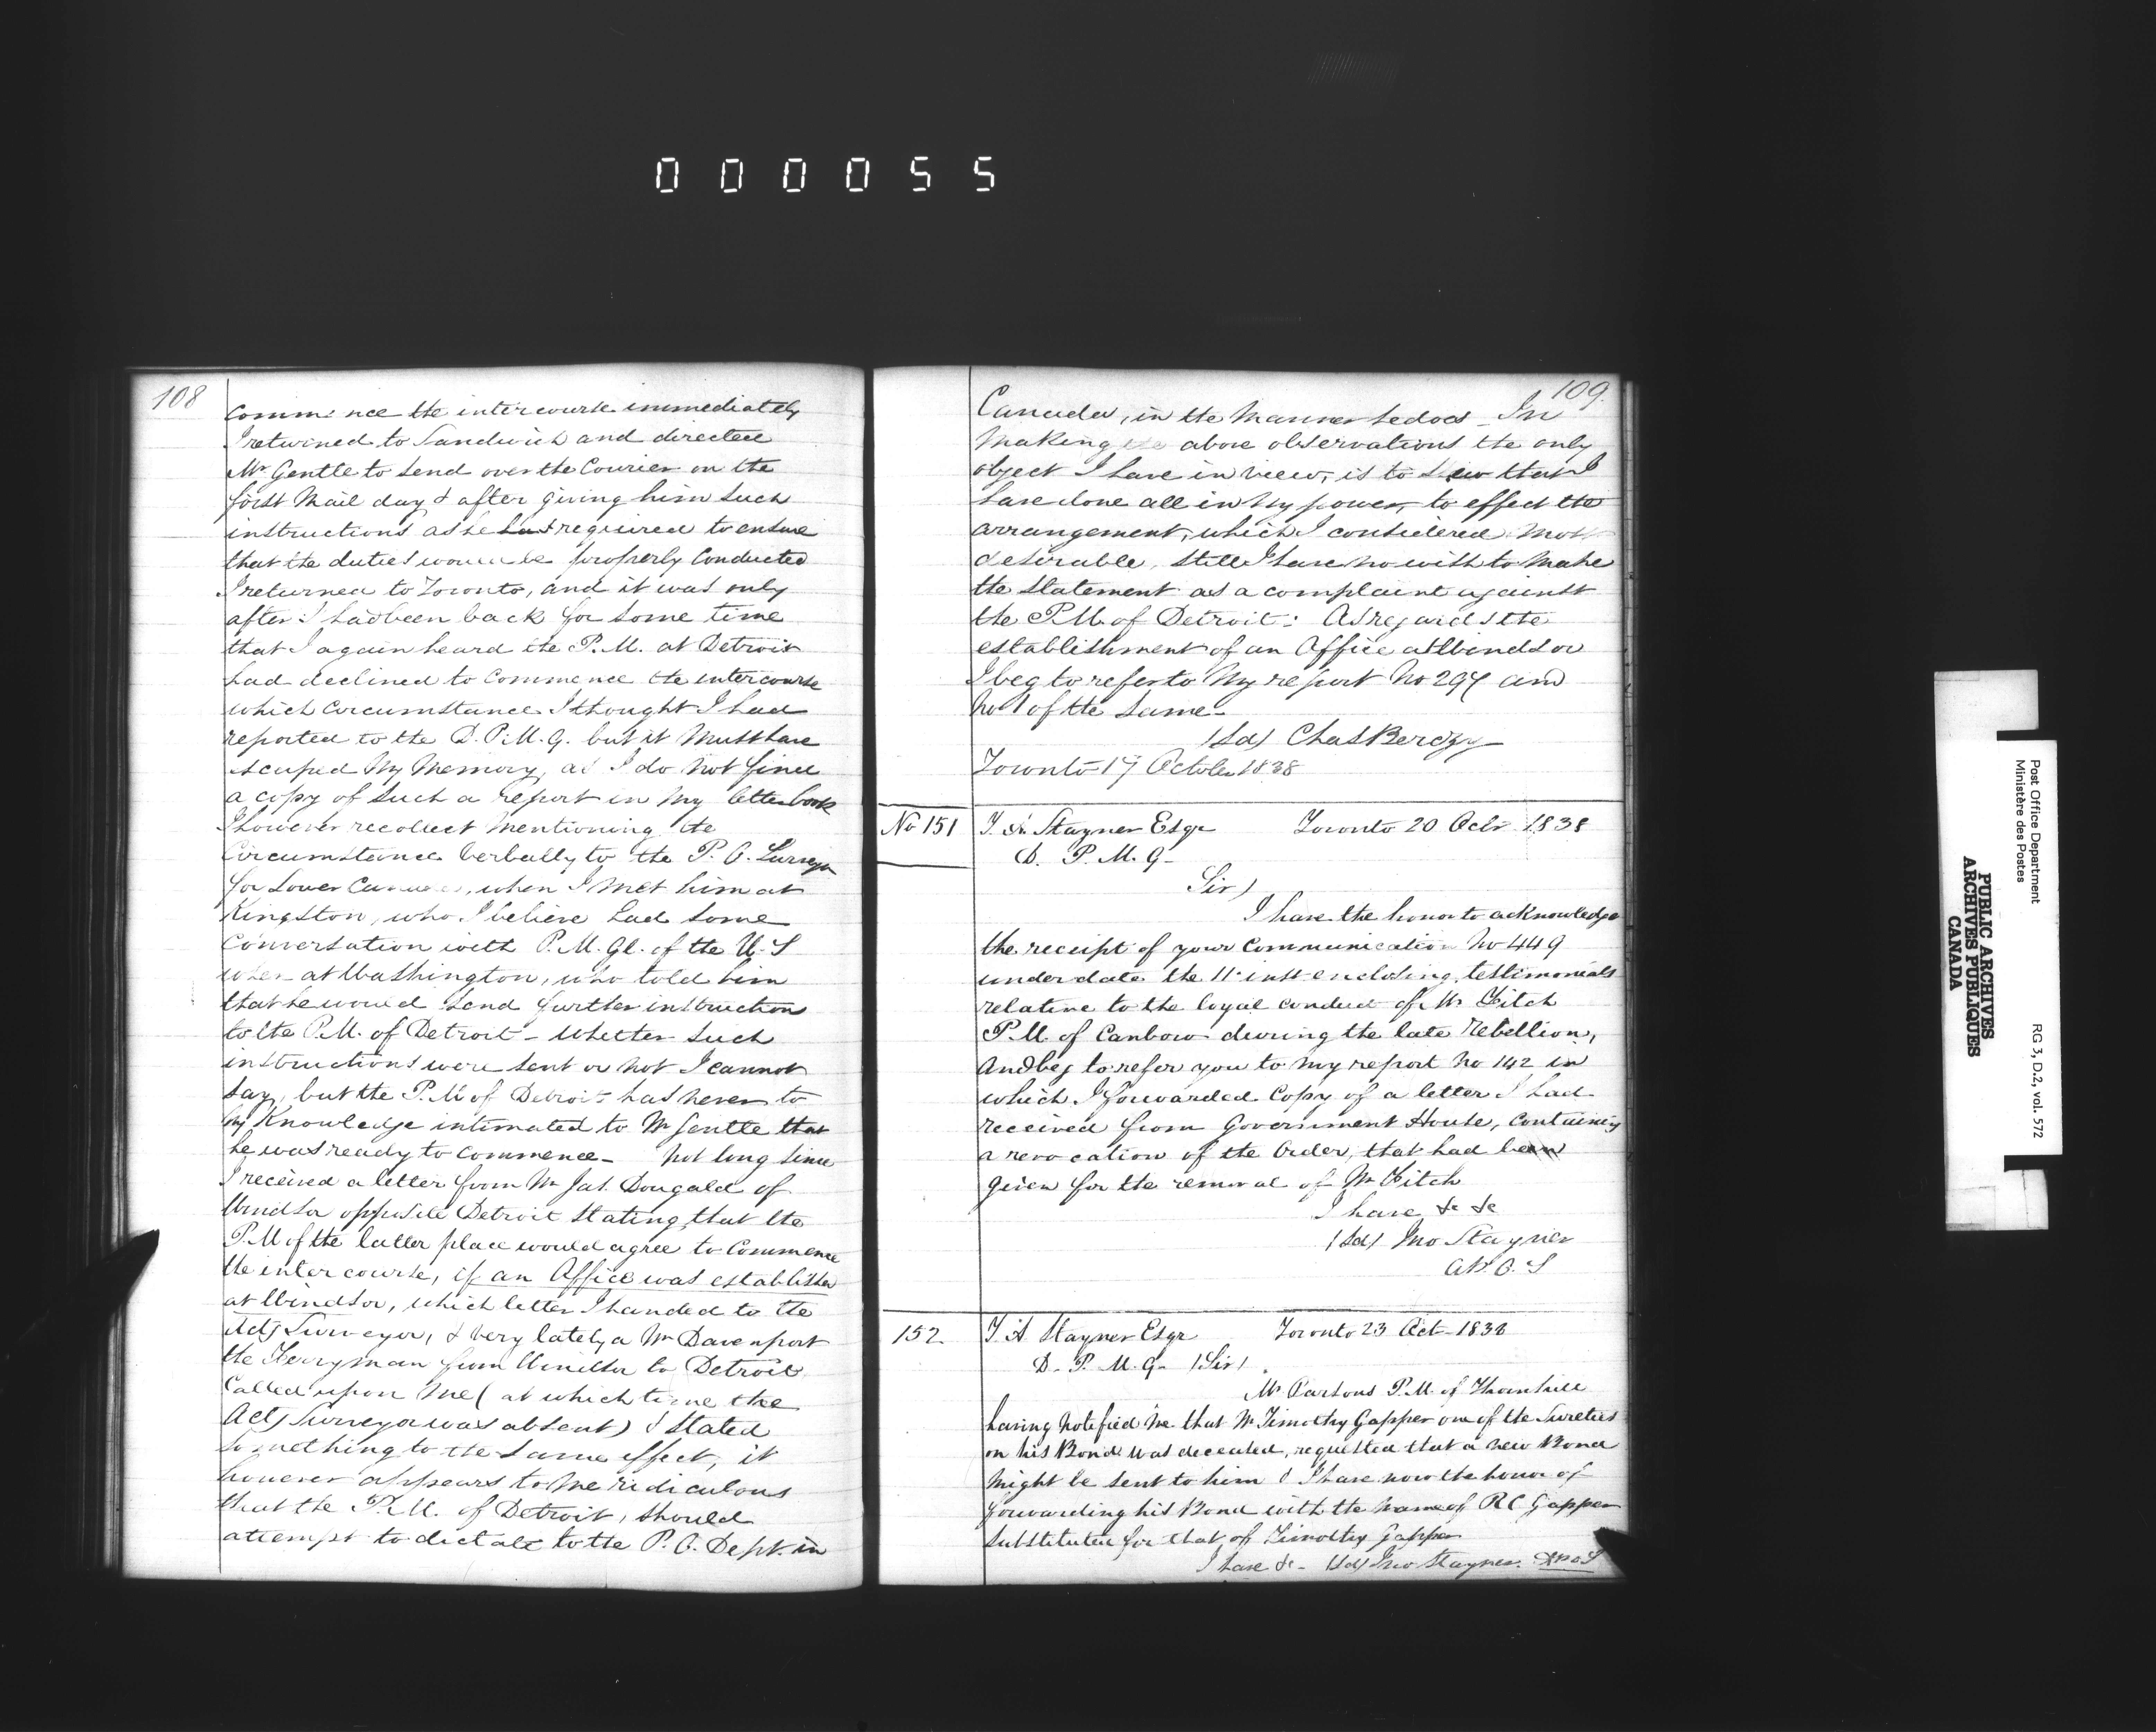 000055
108
commence the intercourse immediately
I returned to Sandwich and directed
Mr Gentle to send over the Courier on the
first Mail day & after giving him such
instructions as he had required to ensure
that the duties would be properly Conducted
I returned to Toronto, and it was only
after I had been back for some time
that I again heard the P.M. at Detroit
had declined to Commence the intercourse
which circumstance I thought I had
reported to the D.P.M.G. but it Must have
escaped My Memory, as I do Not find
a copy of such a report in My letterbook
I however recollect Mentioning the
Circumstance Verbally to the P.O. Surveyor
for Lower Canada, when I met him at
Kingston, who I believe had some
Conversation with P.M. Gl. of the U.S
when at Washington, who told him
that he would send further instruction
to the P.M. of Detroit - whether such
instructions were sent or not I cannot
say, but the P.M of Detroit has never to
My Knowledge intimated to Mr Gentle that
he was ready to Commence - Not long since
I received a letter from Mr Jas. Dougald of
Windsor opposite Detroit stating, that the
P.M of the latter place would agree to Commence
the intercourse, if an Office was established
at Windsor, which letter I handed to the
Actg Surveyor, & Very lately a Mr Davenport
the Ferryman from Windsor to Detroit
Called upon Me ( at which time the
Actg Surveyor was absent) & Stated
something to the same effect, it
however appears to Me ridiculous
that the P.M. of Detroit, should
attempt to dictate to the P.O. Dept. in
109.
Canada, in the Manner he does - In
Making the above observations the only
object I have in view, is to shew that I
have done all in My power, to effect the
arrangement, which I considered Most
desirable, still I have no wish to Make
the statement as a complaint against
the P.M. of Detroit: As regards the
establishment of an Office at Windsor
I beg to refer to My report No 297 and
No 1 of the same -
(Sd) Chas Berczy
Toronto 17 October 1838
No 151
T. A Stayner Esqr Toronto 20 Octr 1838
D. P. M. G -
Sir)
I have the honor to acknowledge
the receipt of your Communication No 449
under date the 11th inst enclosing testimonials
relative to the loyal conduct of Mr Fitch
P.M. of Canboro during the late Rebellion,
And beg to refer you to My report No 142 in
which I forwarded Copy of a letter I had
received from Government House, Containing
a revocation of the Order, that had been
given for the removal of Mr Fitch
I have &c &c
(Sd) Jno Stayner
AP.O.S
152
T. A Stayner Esqr Toronto 23 Oct - 1838
D. P. M. G - (Sir)
Mr Parsons P.M. of Thornhill
having Notified Me that Mr Timothy Gapper one of the Sureties
on his Bond was deceased, requested that a new Bond
Might be sent to him & I have now the honor of
forwarding his Bond with the Name of R C Gapper
substituted for that of Timothy Gapper
I have &c - (Sd) Jno Stayner. APOS
Post Office Department
Ministère des Postes
RG 3, D.2, vol. 572
PUBLIC ARCHIVES
ARCHIVES PUBLIQUES
CANADA